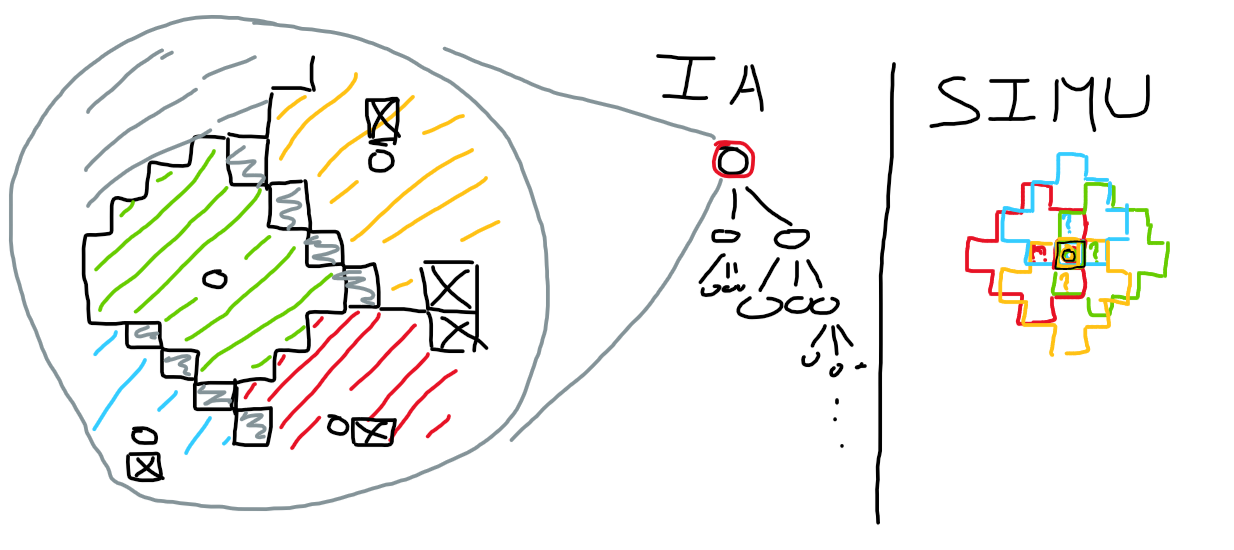 IA
SIMU
? ? ? ?